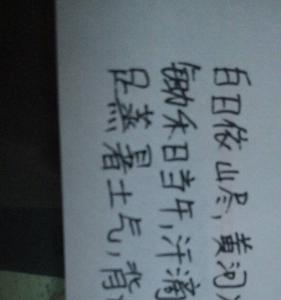 白日依山尽,黄河
锄禾日当午,汗滴
足蒸暑土气,背